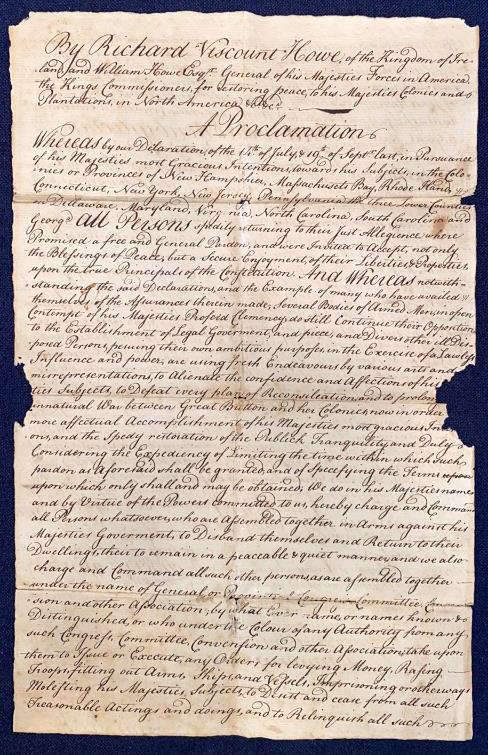 By Richard Viscount Howe, of the Kingdom of Ire-
land, and William Howe Esqr. General of his Majesties Forces in America,
the Kings Commissioners, for restoring peace, to his Majesties Colonies and
Plantations, in North America &c. &c.
A Proclamation
Whereas by our Declaration, of the 14th of July, & 19th of Septr. last, in Pursuance
of his Majesties most Gracious Intentions, towards his Subjects, in the Colo-
nies or Provinces of New Hampshier, Massachusets Bay, Rhode Iland,
Connecticut, New York, New Jersey, Pennsylvania the three Lower Counties
on Dellaware, Maryland, Virginia, North Carolina, South Carolina and
Georga all Persons spedily returning to their Just Allegience where
Promised a free and General Pardon, and were Invited to Accept, not only
the Blessings of Peace, but a Secure Enjoyment, of their Liberties & Properties,
upon the true Principals of the Constitution. And Whereas notwith-
standing the said Declarations, and the Example of many who have availed
themselves of the Assurances therein made, Several Bodies of Armed Men, in open
Contempt of his Majesties Proford Clemency, do still Continue their Opposition
to the Establishment of Legal Goverment, and piece, and Divers other ill Dis-
posed Persons, persuing their own ambitious purposes, in the Exercise of a Lawless
Influence and power, are using fresh Endeavours by various arts and
misrepresentations, to Alienate the confidence and Affections of his
ties Subjects, to Defeat every plan of Reconsilation, and to prolong
unnatural War between Great Britton and her Colonies, now in order
more affectual Accomplishment of his Majesties most gracious Inten
ons, and the Spedy restoration of the Publick Tranquility, and Duly
Considering the Expediency of Limiting the time within which such
pardon as Aforesaid shall be granted, and of Specefying the Terms upon
upon which only shall and may be obtained, We do in his Majesties name
and by Virtue of the Powers committed to us, hereby charge and Command
all Persons whatsoever, who are Assembled together in Arms against his
Majesties Goverment, to Disband themselves and Return to their
Dwellings, their to remain in a peaceable & quiet manner, and we also
charge and Command all such other persons as are assembled together
under the name of General or Provincial Congress Committee
sion and other Association, by what Ever name, or names known &
Distinguished, or who under the Colour of any Authority from any
such Congress, Committee, Convension and other Association, take upon
them to Issue or Execute, any Orders for levying Money, Rasing
Troops, fitting out Arms, Ships, and Vessels, Imprisoning or otherways
Molesting his Majesties, Subjects, to Desist and cease from all such
Treasonable Actings and doings, and to Relinquish all such